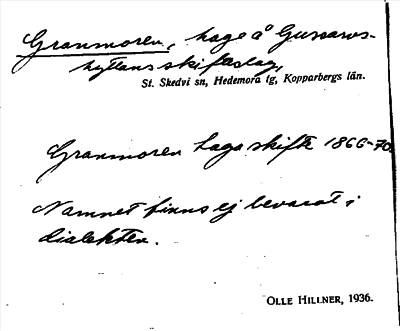 Granmoren, hage å Gussarvs-
hyttans skifteslag,
St. Skedvi sn, Hedemora tg, Kopparbergs län.
Granmoren laga skifte 1866-70.
Namnet finns ej bevarat i
dialekten.
OLLE HILLNER, 1936.